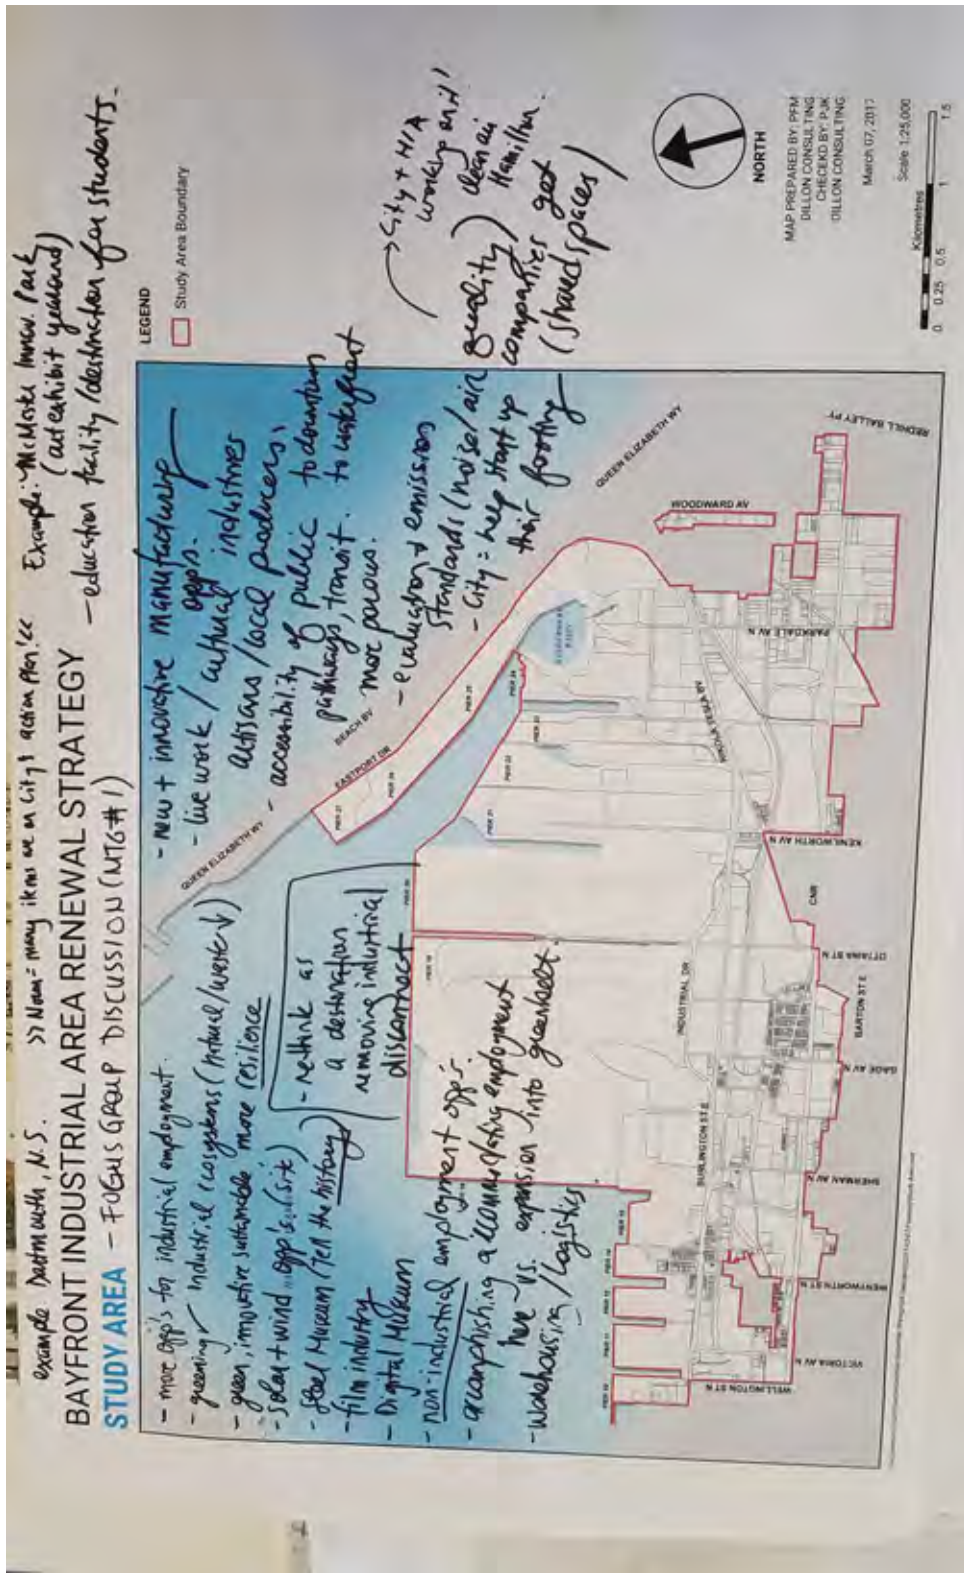 example Dartmouth, N.S.
>> Norm = many items on City's action plan
Example: McMaster Innov. Park
(art exhibit yearround)
- education facility/destination for students.
BAYFRONT INDUSTRIAL AREA RENEWAL STRATEGY
STUDY AREA - FOCUS GROUP DISCUSSION (MTG #1)
- more opp's for industrial employment.
- greening / industrial ecosystems (mutual/waste ↓)
- green, innovative sustainable more resilience
- solar + wind opp's (site)
- Steel Museum (Tell the history)
- film industry
- Digital Museum
- non-industrial employment opp's.
- accomphishing accommodating employment
here vs. expansion into greenbelt.
- warehousing / logistics
- rethink as
a destination
removing industrial
disconnect
- new + innovative manufacturing
opps.
- live work / cultural industries
artisans / local producers.
- accessibility of public to downtown
pathways, transit. to waterfront
more porous.
- evaluation + emission
standards (noise/air quality)
- City = help start up companies get
their footing (shared spaces)
→ City + HIA
working on it!
clean air
Hamilton.
LEGEND
Study Area Boundary
NORTH
MAP PREPARED BY: PFM
DILLON CONSULTING
CHECEKD BY: PJK
DILLON CONSULTING
March 07, 2017
Scale 1:25,000
Kilometres
0 0.25 0.5 1 1.5
QUEEN ELIZABETH WY
BEACH BV
EASTPORT DR
QUEEN ELIZABETH WY
WOODWARD AV
REDHILL BALLEY PY
PARKDALE AV N
NIKOLA TESLA BV
KENILWORTH AV N
CNR
OTTAWA ST N
BARTON ST E
GAGE AV N
INDUSTRIAL DR
BURLINGTON ST E
SHERMAN AV N
WENTWORTH ST N
VICTORIA AV N
WELLINGTON ST N
PIER 10
PIER 11
PIER 12
PIER 14
PIER 15
PIER 18
PIER 20
PIER 21
PIER 22
PIER 23
PIER 24
PIER 25
PIER 26
PIER 27